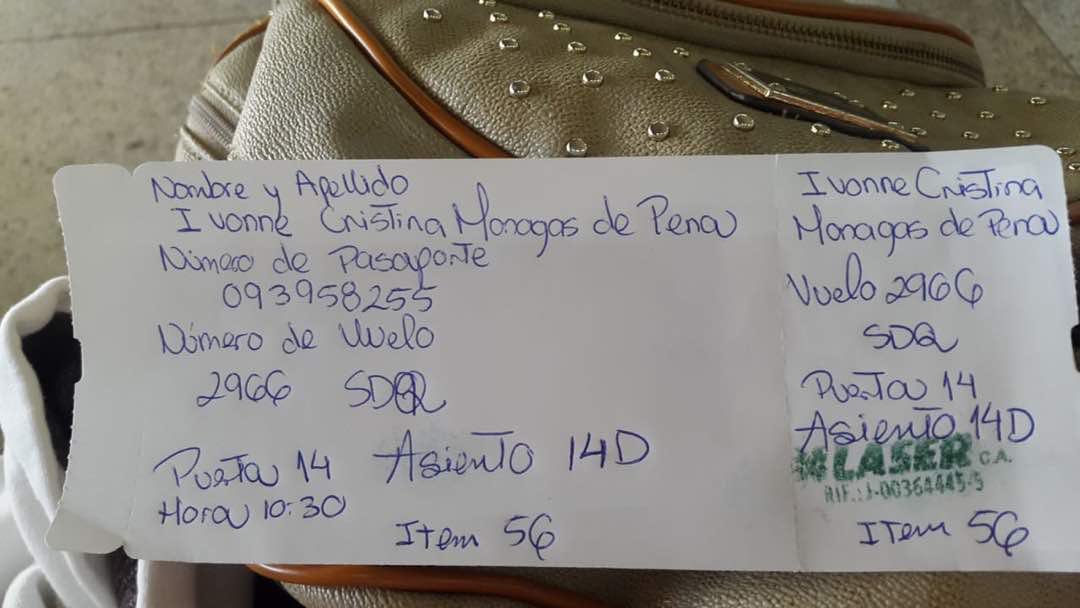 Nombre y Apellido
Ivonne Cristina Monagas de Pena
Número de Pasaporte
093958255
Número de Vuelo
2966 SDQ
Puerta 14 Asiento 14D
Hora 10:30
Item 56
Ivonne Cristina
Monagas de Pena
Vuelo 2966
SDQ
Puerta 14
Asiento 14D
LASER C.A.
RIF.:J-00364445-5
Item 56